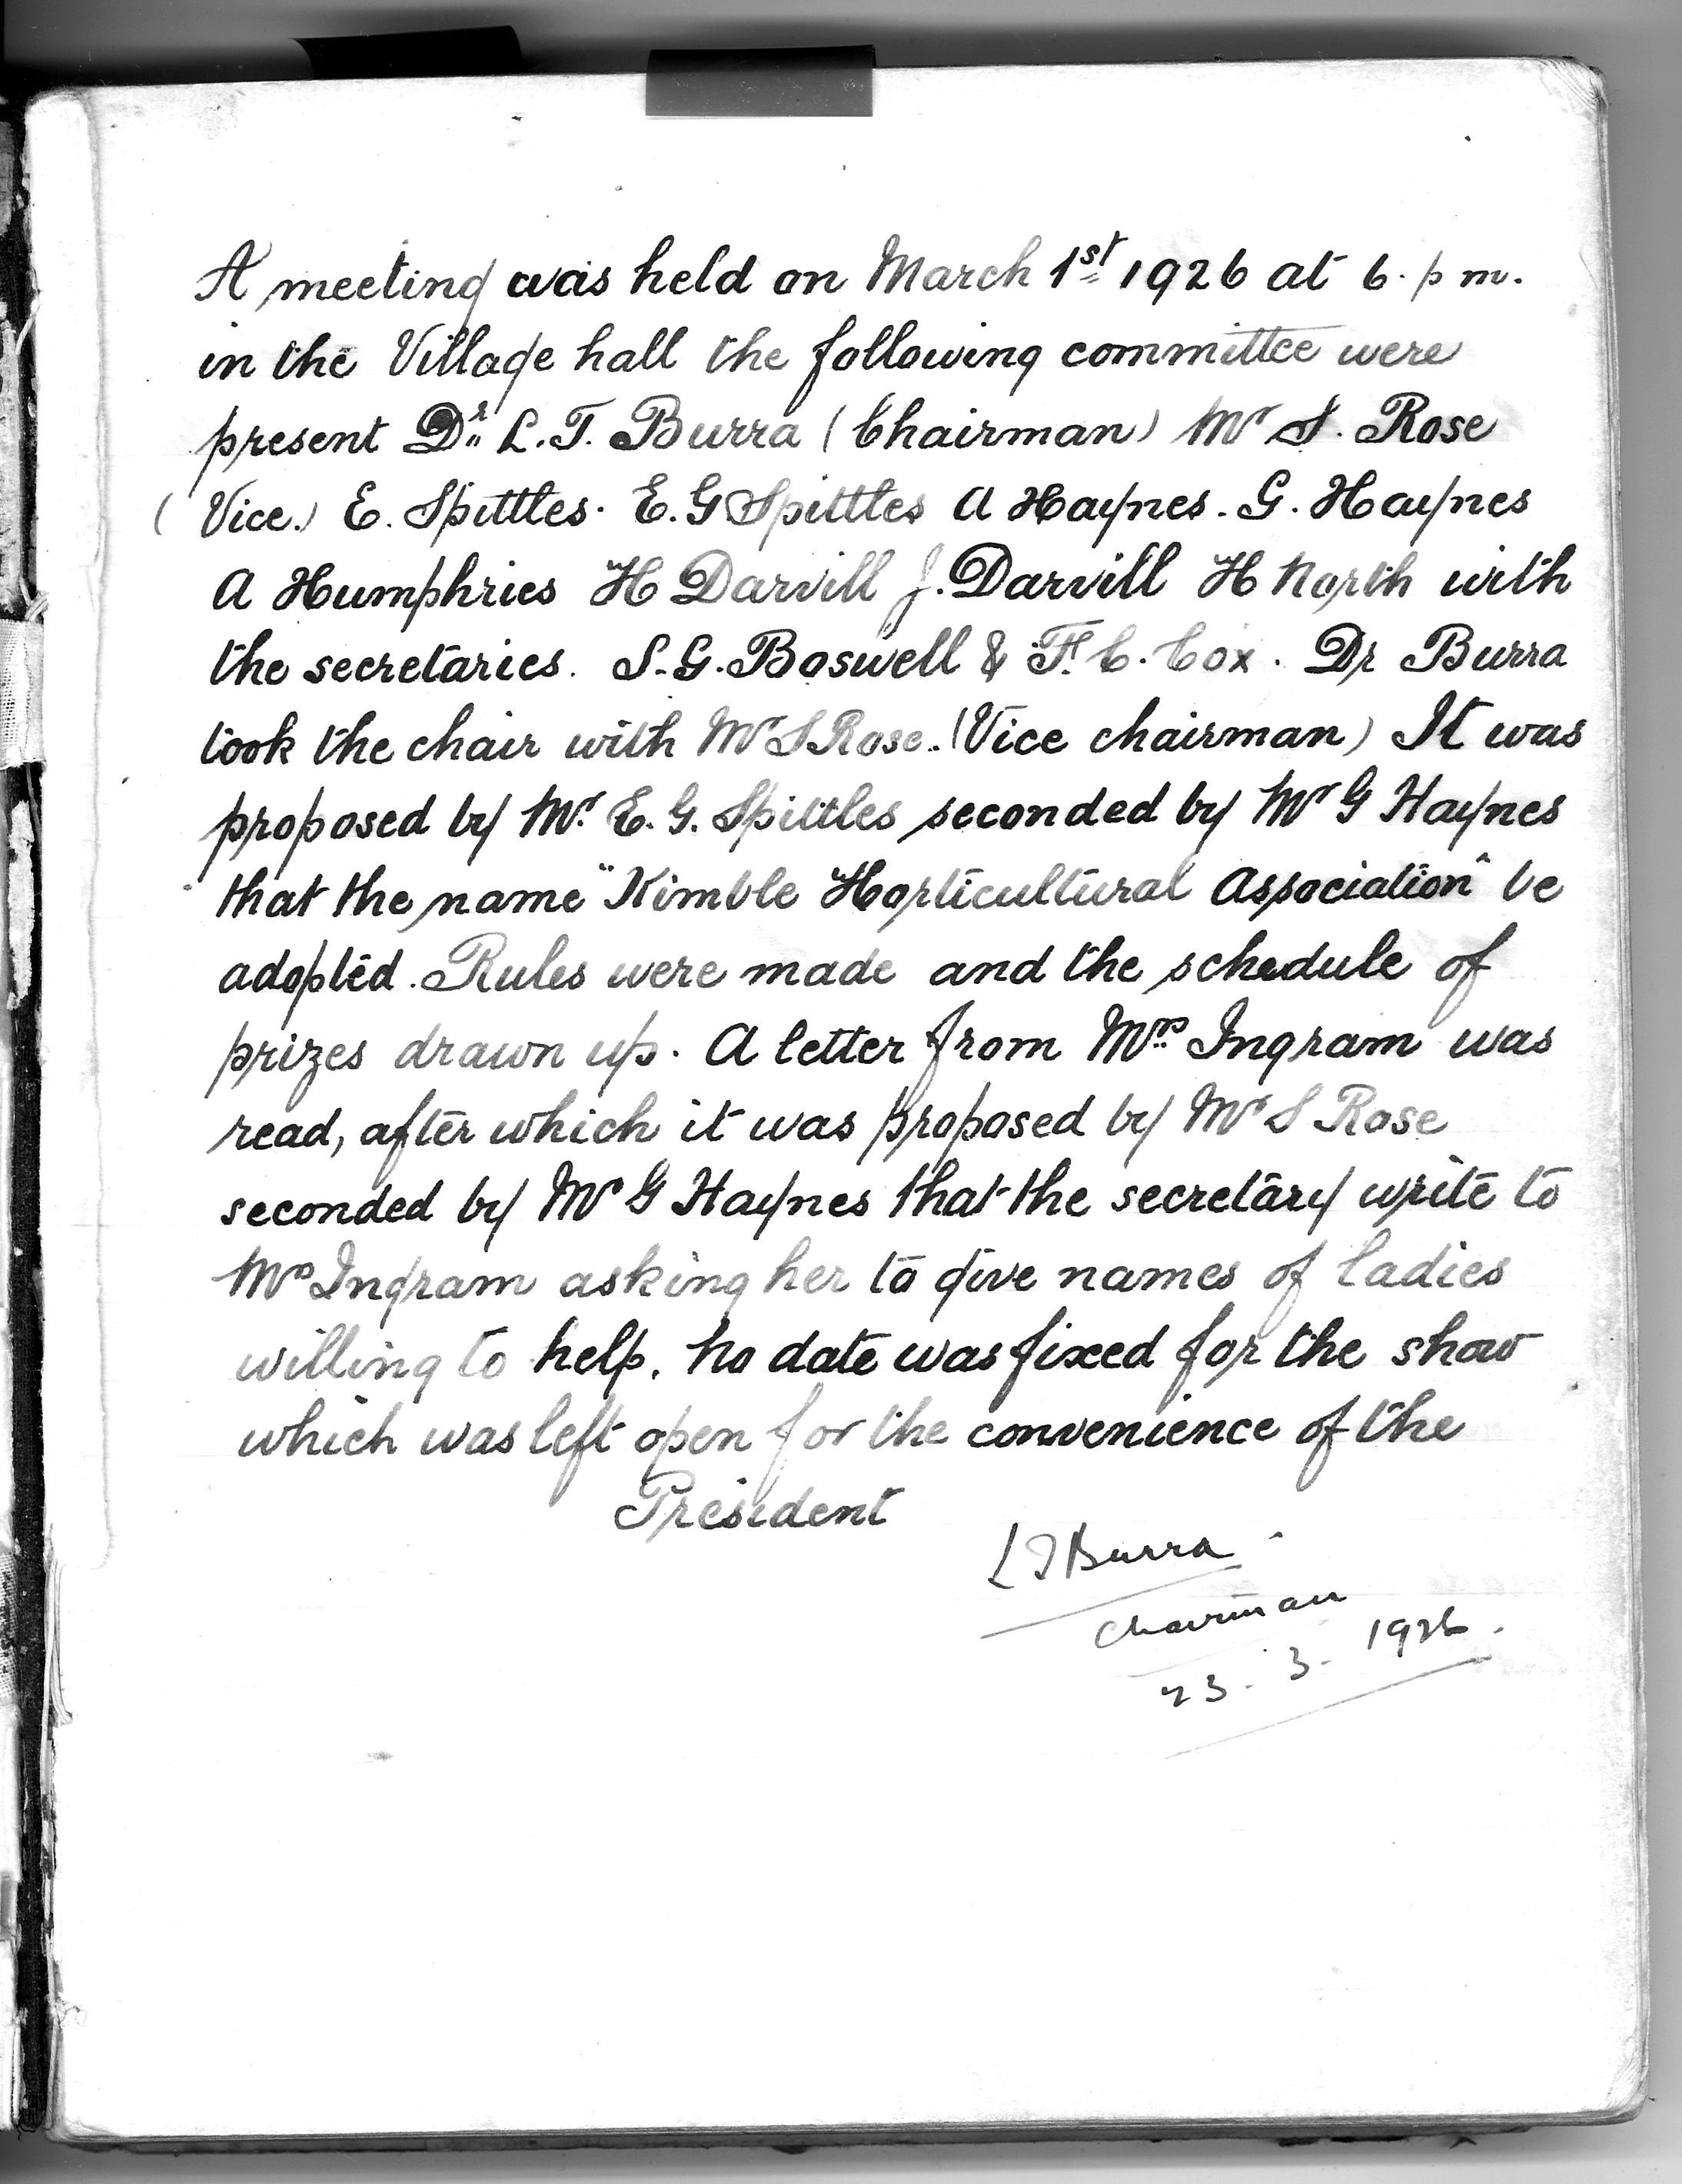 A meeting was held on March 1st 1926 at 6. p m.
in the Village hall the following committee were
present Dr L. T. Burra (Chairman) Mr S. Rose
(Vice.) E. Spittles. E. G Spittles A Haynes. G. Haynes
A Humphries H Darvill J. Darvill H North with
the secretaries. S. G. Boswell & F. C. Cox. Dr Burra
took the chair with Mr S Rose. (Vice chairman) It was
proposed by Mr. E. G. Spittles seconded by Mr G Haynes
that the name "Kimble Horticultural Association" be
adopted. Rules were made and the schedule of
prizes drawn up. A letter from Mrs Ingram was
read, after which it was proposed by Mr S Rose
seconded by Mr G Haynes that the secretary write to
Mrs Ingram asking her to give names of ladies
willing to help. No date was fixed for the show
which was left open for the convenience of the
President
L T Burra
Chairman
23. 3. 1926.